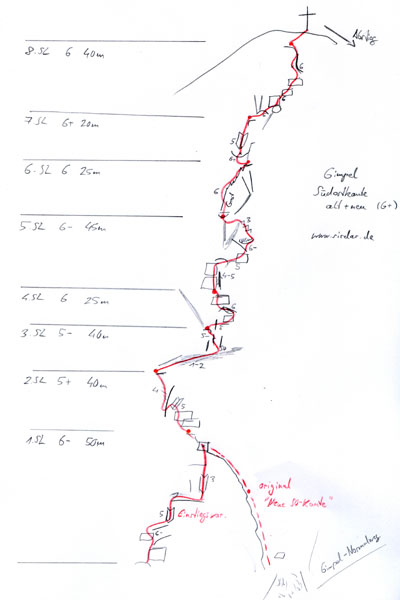 Abstieg
8.SL 6 40m
6
6
7.SL 6+ 20m
5
6-
6.SL 6 25m
6
Gimpel
Südostkante
alt + neu (6+)
www.sirdar.de
5 SL 6- 45m
3
6-
5
4-5
4 SL 6 25m
6
3 SL 5- 40m
5-
1-2
2.SL 5+ 40m
4
5
1.SL 6- 50m
3
original
"Neue SO-Kante"
5
Einstiegsvar.
6-
Gimpel-Normalweg